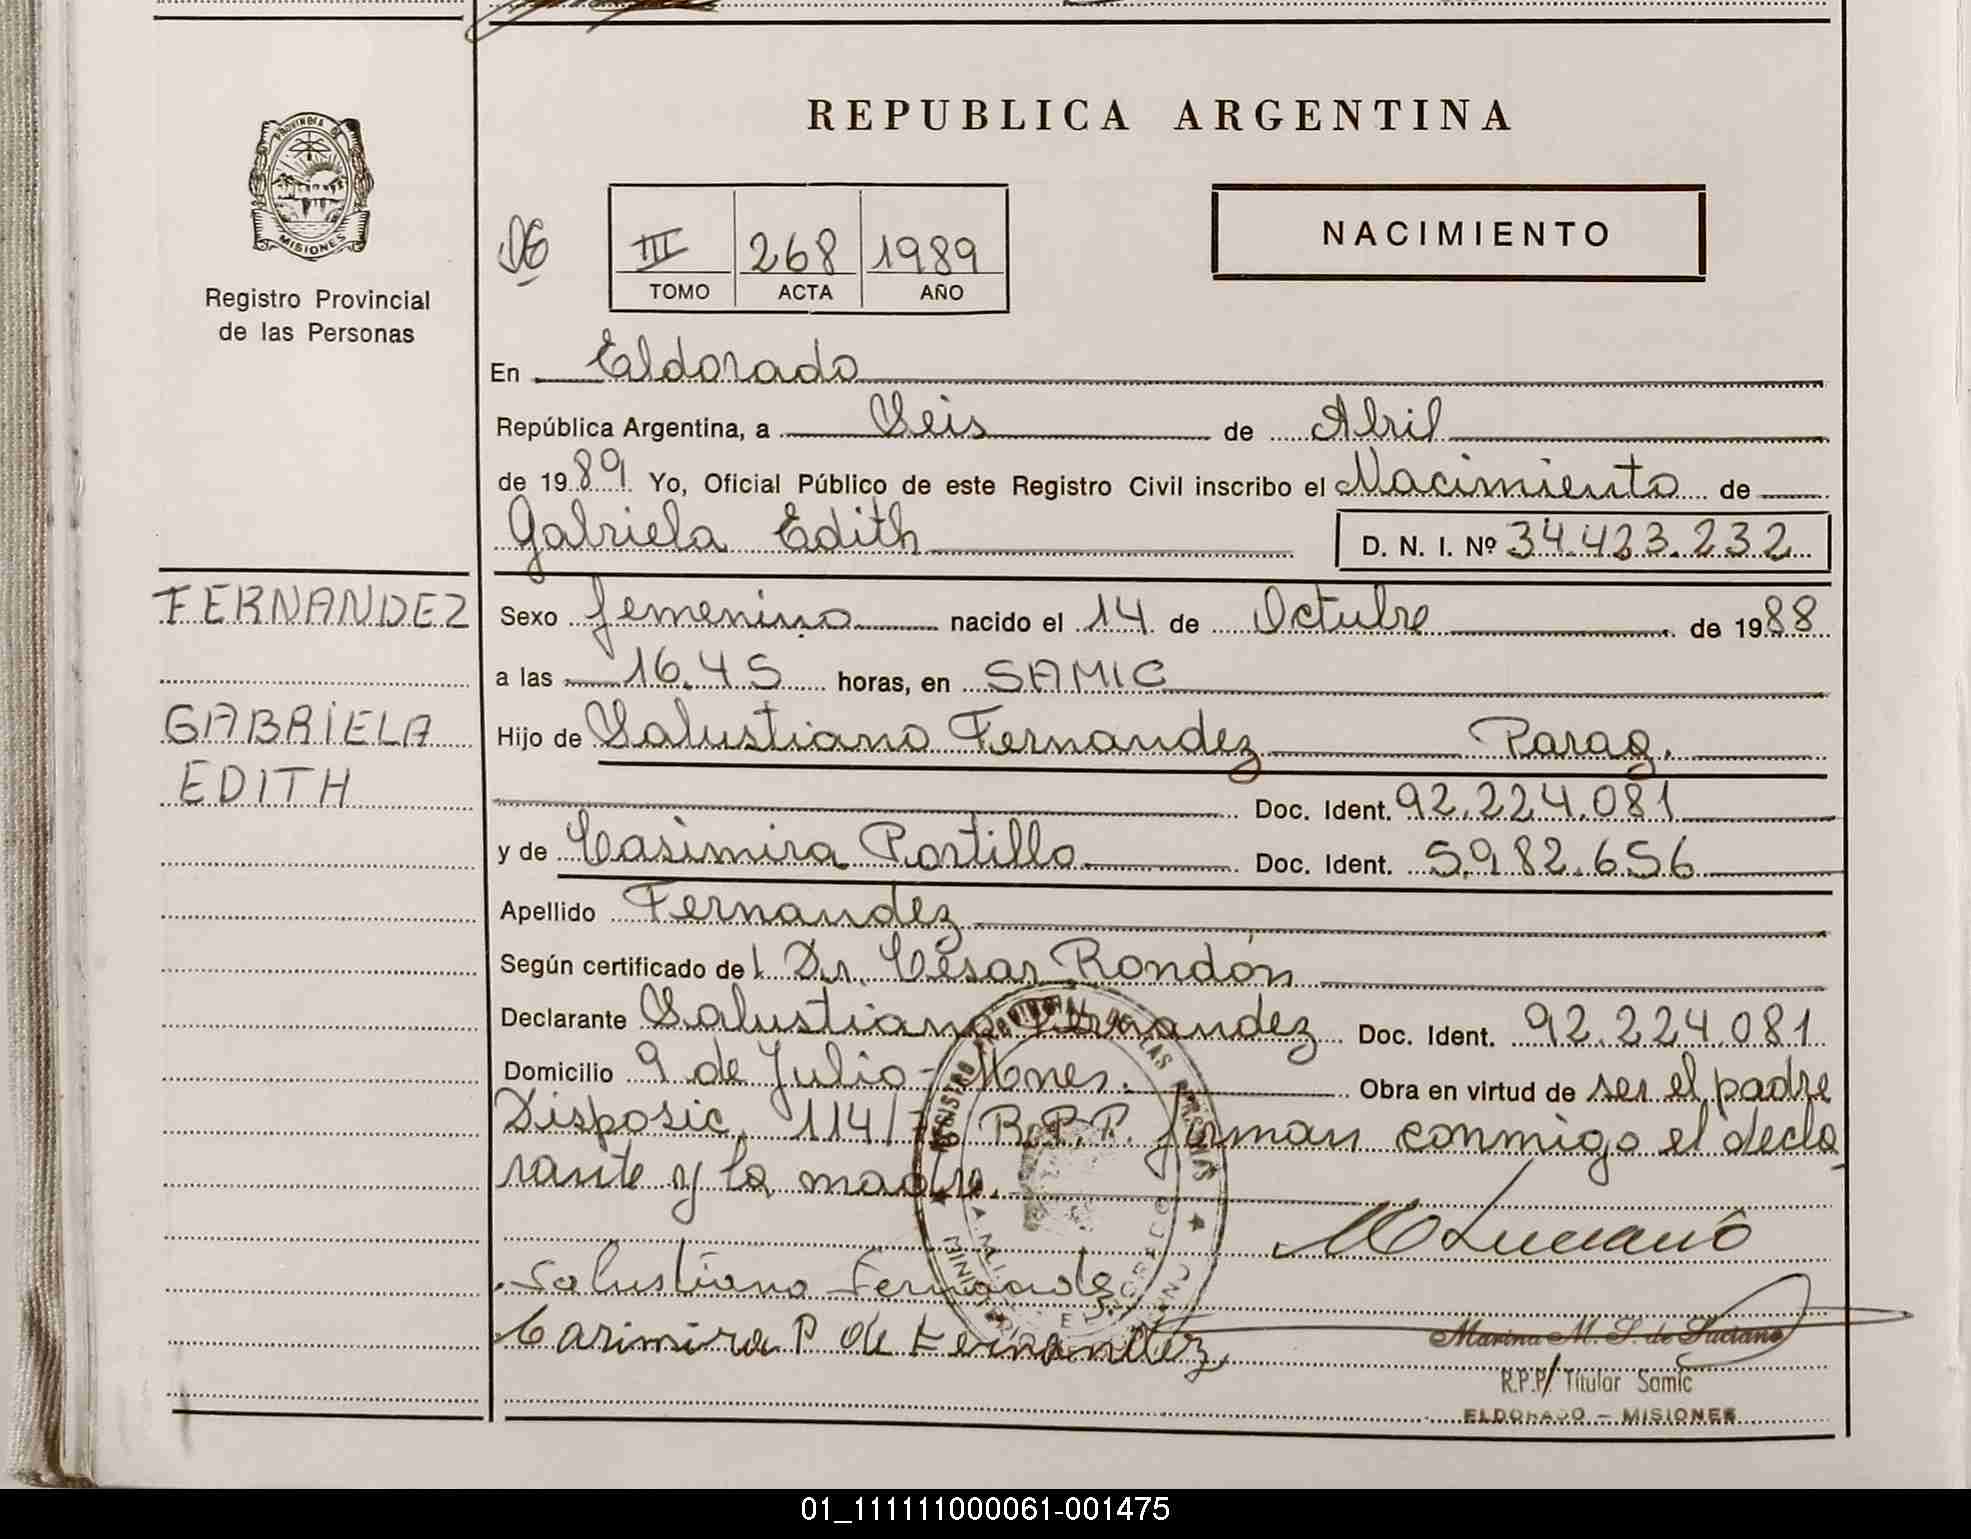 REPUBLICA ARGENTINA
PROVINCIA DE
MISIONES
Registro Provincial
de las Personas
III 268 1989
TOMO ACTA AÑO
NACIMIENTO
En Eldorado
República Argentina, a Seis de Abril
de 1989 Yo, Oficial Público de este Registro Civil inscribo el Nacimiento de
Gabriela Edith D. N. I. Nº 34.423.232
FERNANDEZ
GABRIELA
EDITH
Sexo femenino nacido el 14 de Octubre de 1988
a las 16.45 horas, en SAMIC
Hijo de Salustiano Fernandez Parag.
Doc. Ident. 92.224.081
y de Casimira Portillo Doc. Ident. 5.982.656
Apellido Fernandez
Según certificado del Dr. César Rondón
Declarante Salustiano Fernandez Doc. Ident. 92.224.081
Domicilio 9 de Julio - Mnes. Obra en virtud de ser el padre
Disposic. 114/ R.P.P. firman conmigo el decla
rante y la madre.
M Luciano
Salustiano Fernandez
Casimira P de Fernandez
REGISTRO PROVINCIAL DE LAS PERSONAS
Marina M. S. de Luciano
R.P.P/ Titular Samic
ELDORADO - MISIONES
01_111111000061-001475